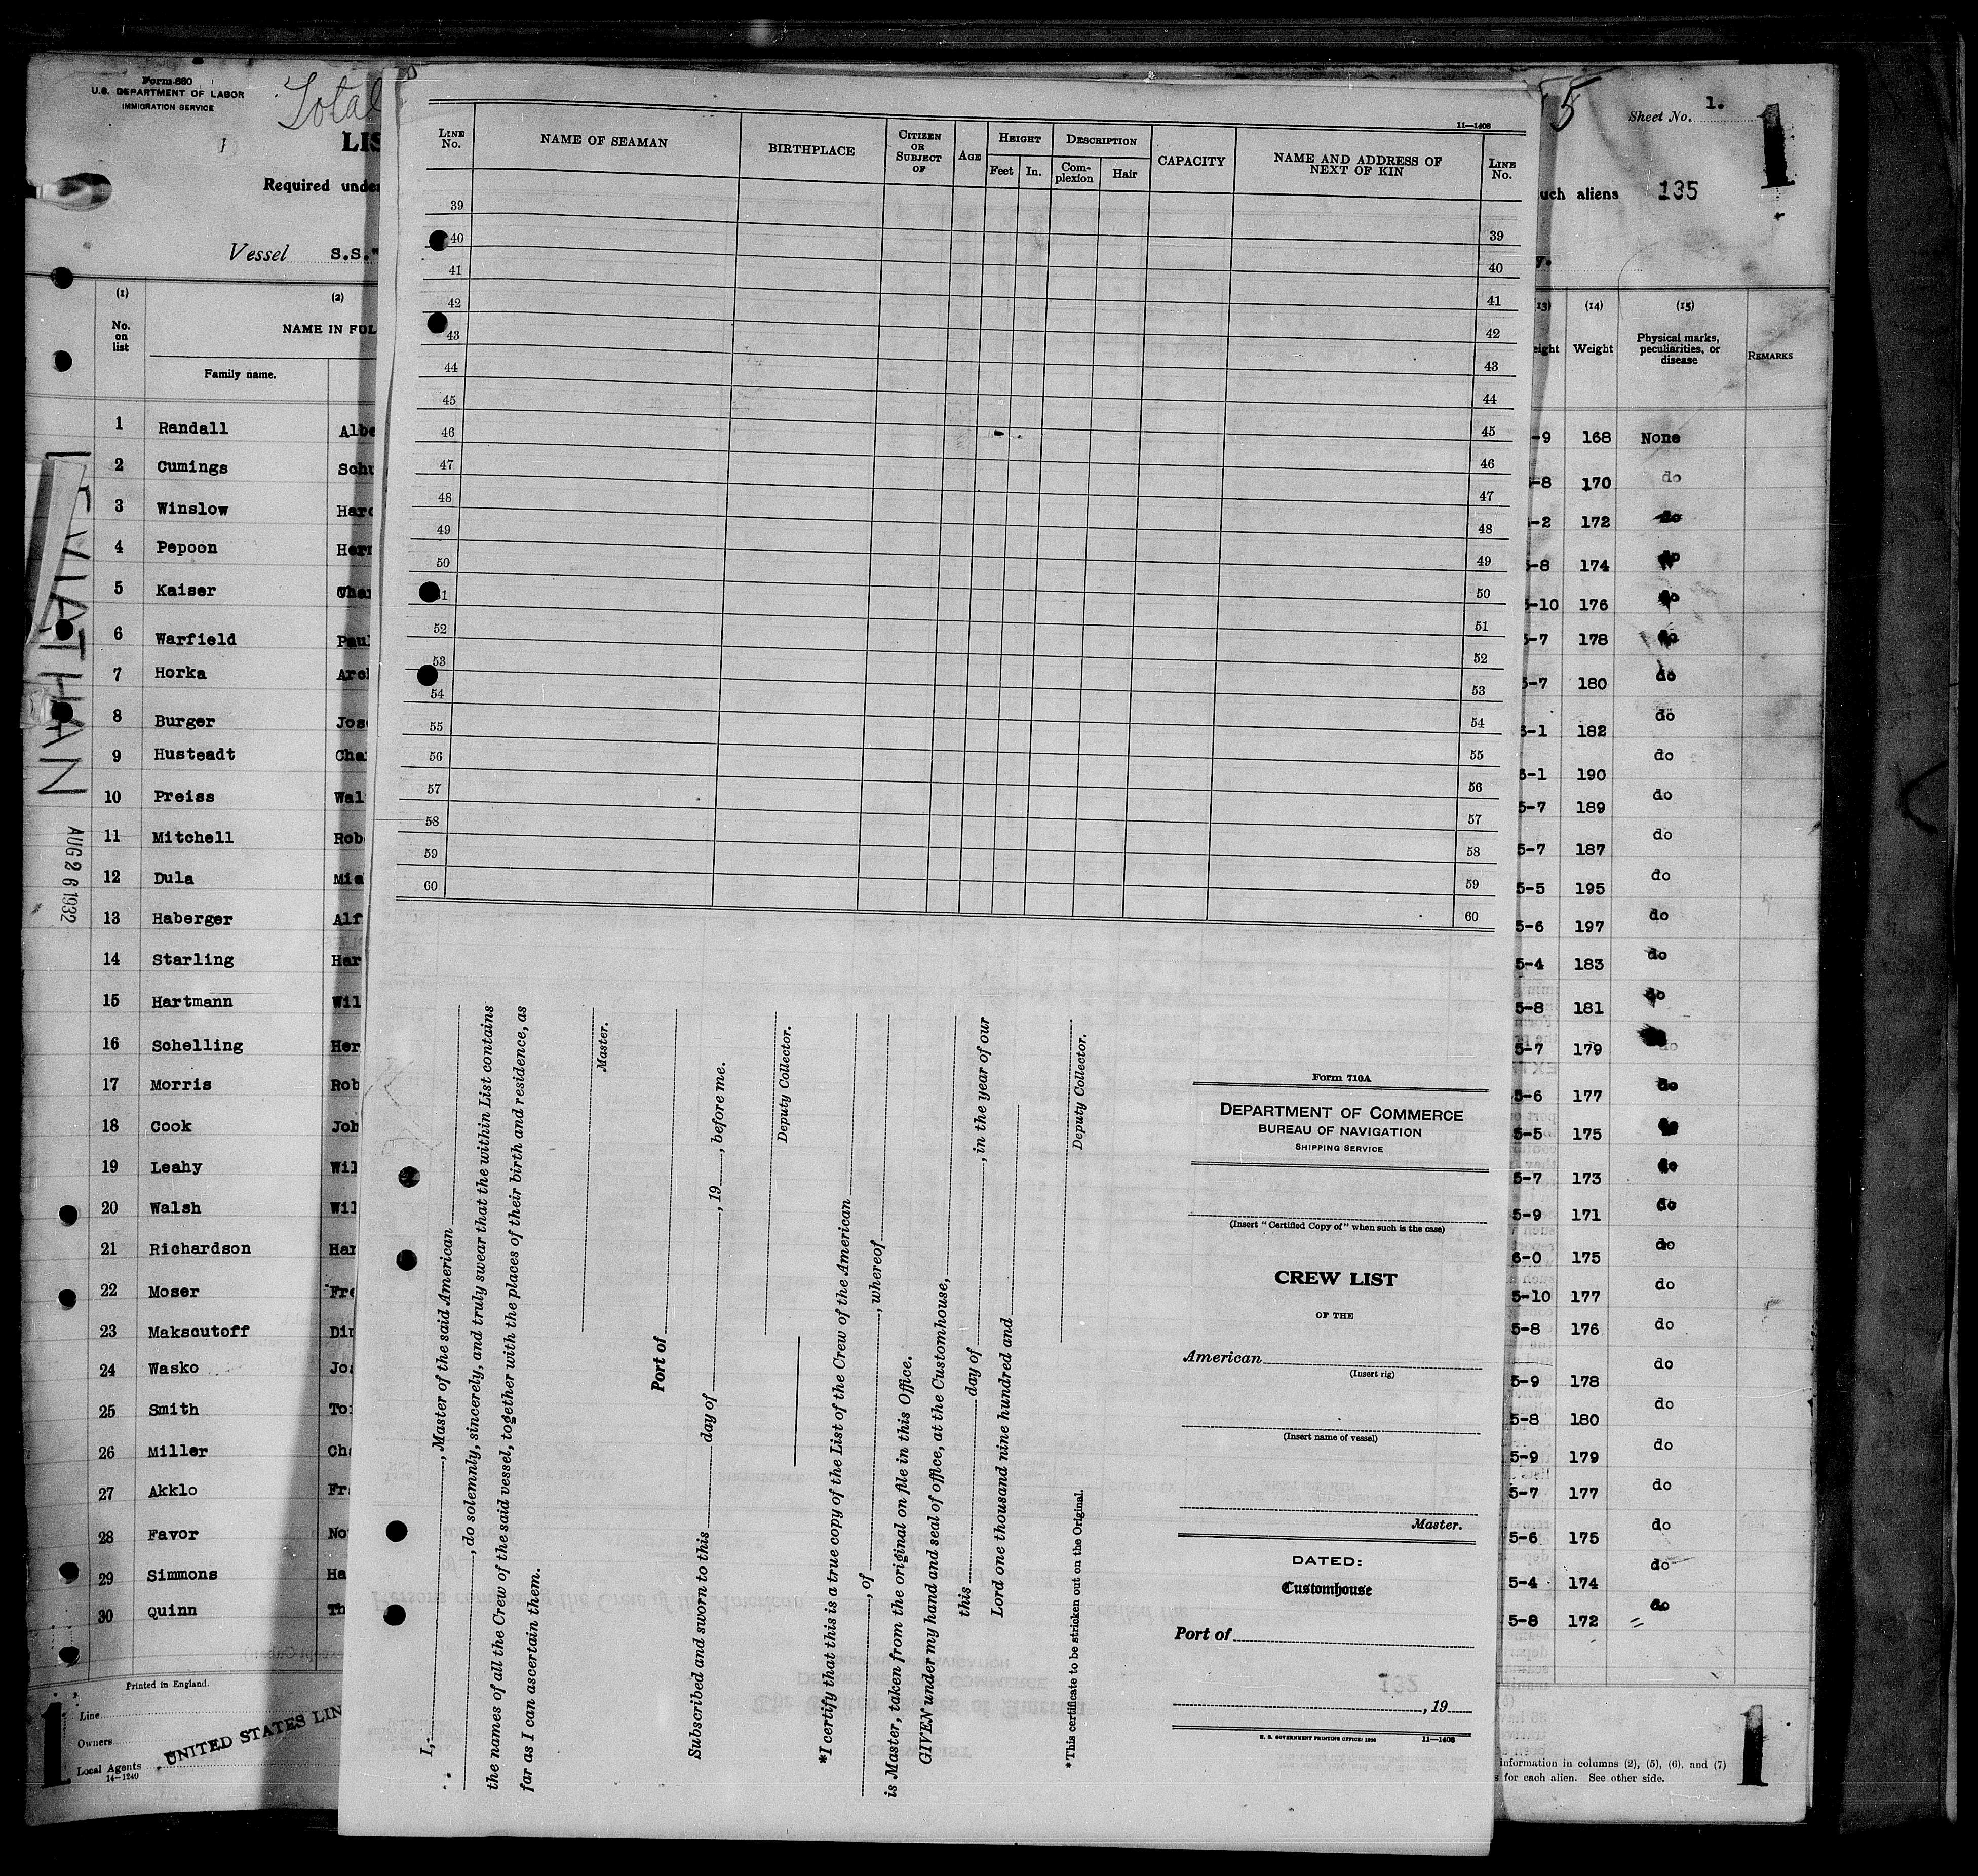 Form 680
U.S. DEPARTMENT OF LABOR
IMMIGRATION SERVICE
Total
LIS
Required unde
Vessel S.S."
(1) (2)
No. on list
NAME IN FUL
Family name.
1 Randall Albe
2 Cumings Schu
3 Winslow Haro
4 Pepoon Herm
5 Kaiser Char
6 Warfield Paul
7 Horka Arch
8 Burger Jose
9 Husteadt Cha
10 Preiss Wal
11 Mitchell Rob
12 Dula Mic
13 Haberger Alf
14 Starling Har
15 Hartmann Wil
16 Schelling Her
17 Morris Rob
18 Cook Joh
19 Leahy Wil
20 Walsh Wil
21 Richardson Har
22 Moser Fre
23 Maksoutoff Dim
24 Wasko Jos
25 Smith To
26 Miller Ch
27 Akklo Fr
28 Favor No
29 Simmons Ha
30 Quinn Th
LEVIATHAN
AUG 26 1932
Printed in England.
Line
Owners
Local Agents
14-1240
UNITED STATES LIN
1
11—1408
LINE No.
NAME OF SEAMAN
BIRTHPLACE
CITIZEN OR SUBJECT OF
AGE
HEIGHT
Feet In.
DESCRIPTION
Complexion Hair
CAPACITY
NAME AND ADDRESS OF NEXT OF KIN
LINE No.
39 39
40 40
41 41
42 42
43 43
44 44
45 45
46 46
47 47
48 48
49 49
50 50
51 51
52 52
53 53
54 54
55 55
56 56
57 57
58 58
59 59
60 60
I, , Master of the said American
, do solemnly, sincerely, and truly swear that the within List contains
the names of all the Crew of the said vessel, together with the places of their birth and residence, as
far as I can ascertain them.
Master.
Port of
Subscribed and sworn to this day of , 19 , before me.
Deputy Collector.
*I certify that this is a true copy of the List of the Crew of the American
, of , whereof
is Master, taken from the original on file in this Office.
GIVEN under my hand and seal of office, at the Customhouse,
this day of , in the year of our
Lord one thousand nine hundred and
Deputy Collector.
*This certificate to be stricken out on the Original.
Form 710A
DEPARTMENT OF COMMERCE
BUREAU OF NAVIGATION
SHIPPING SERVICE
(Insert "Certified Copy of" when such is the case)
CREW LIST
OF THE
American
(Insert rig)
(Insert name of vessel)
Master.
DATED:
Customhouse
Port of
, 19
11—1408
5
Sheet No. 1.
1
uch aliens 135
y.
13) (14) (15)
eight Weight
Physical marks, peculiarities, or disease
REMARKS
-9 168 None
-8 170 do
-2 172 do
-8 174 do
5-10 176 do
5-7 178 do
5-7 180 do
6-1 182 do
6-1 190 do
5-7 189 do
5-7 187 do
5-5 195 do
5-6 197 do
5-4 183 do
5-8 181 do
5-7 179 do
5-6 177 do
5-5 175 do
5-7 173 do
5-9 171 do
6-0 175 do
5-10 177 do
5-8 176 do
5-9 178 do
5-8 180 do
5-9 179 do
5-7 177 do
5-6 175 do
5-4 174 do
5-8 172 do
information in columns (2), (5), (6), and (7)
s for each alien. See other side.
1